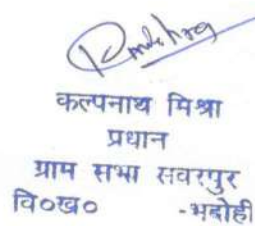 कल्पनाथ मिश्रा
प्रधान
ग्राम सभा सवरपुर
वि०ख० -भदोही